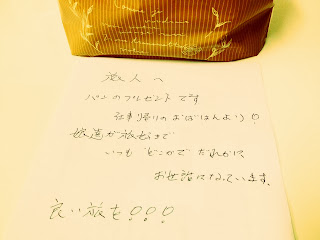 旅人へ
パンのプレゼントです
仕事帰りのおばはんより!
娘達が旅先で
いつも どこかで だれかに
お世話になっています。
良い旅を!!!